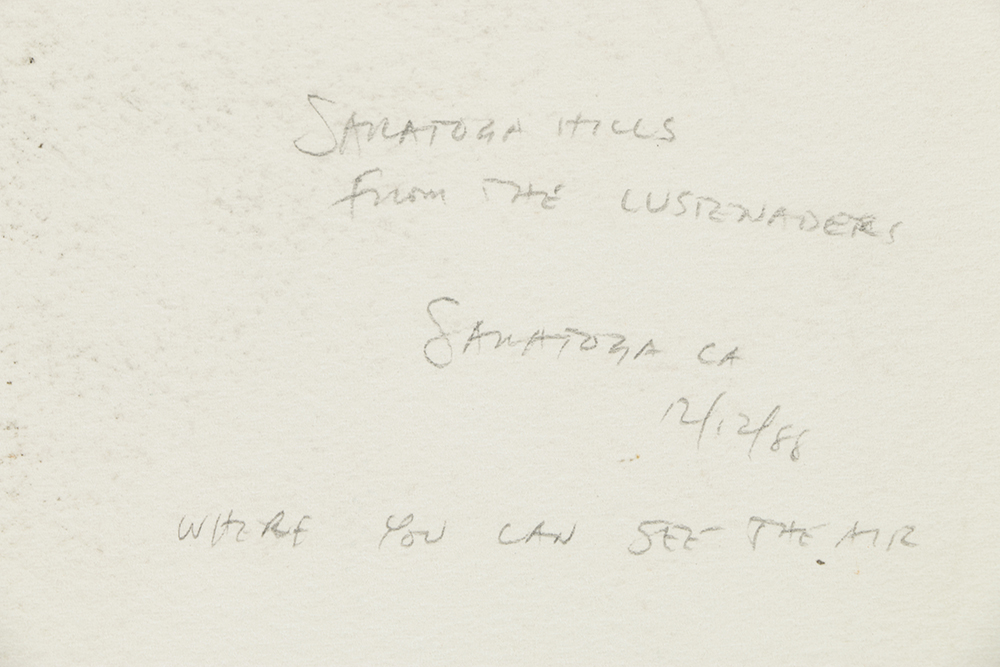 SARATOGA HILLS
From THE LUSTENADERS
SARATOGA CA
12/12/88
WHERE YOU CAN SEE THE AIR